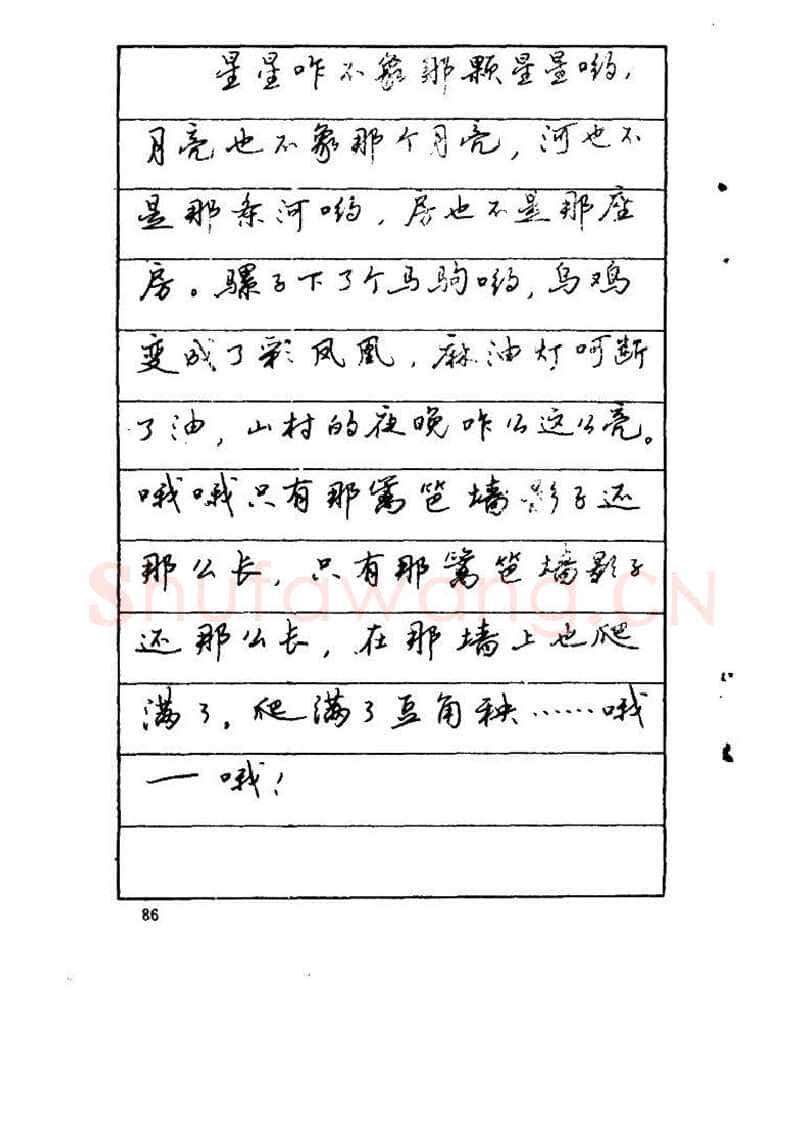 星星咋不象那颗星星哟，
月亮也不象那个月亮，河也不
是那条河哟，房也不是那座
房。骡子下了个马驹哟，乌鸡
变成了彩凤凰，麻油灯呵断
了油，山村的夜晚咋么这么亮。
哦哦只有那篱笆墙影子还
那么长，只有那篱笆墙影子
Shufawang.CN
还那么长，在那墙上也爬
满了，爬满了豆角秧……哦
—哦！
86